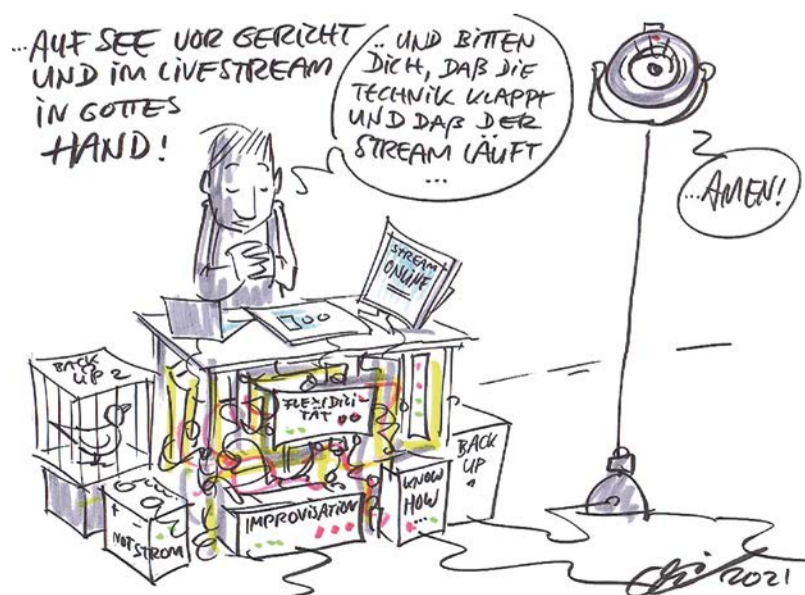 ...AUF SEE VOR GERICHT
UND IM LIVESTREAM
IN GOTTES
HAND!
... UND BITTEN
DICH, DAß DIE
TECHNIK KLAPPT
UND DAß DER
STREAM LÄUFT
...
...AMEN!
STREAM
ONLINE
BACK
UP 2
FLEXIBILI-
TÄT
BACK
UP
KNOW
HOW
...
IMPROVISATION
+ -
NOTSTROM
2021